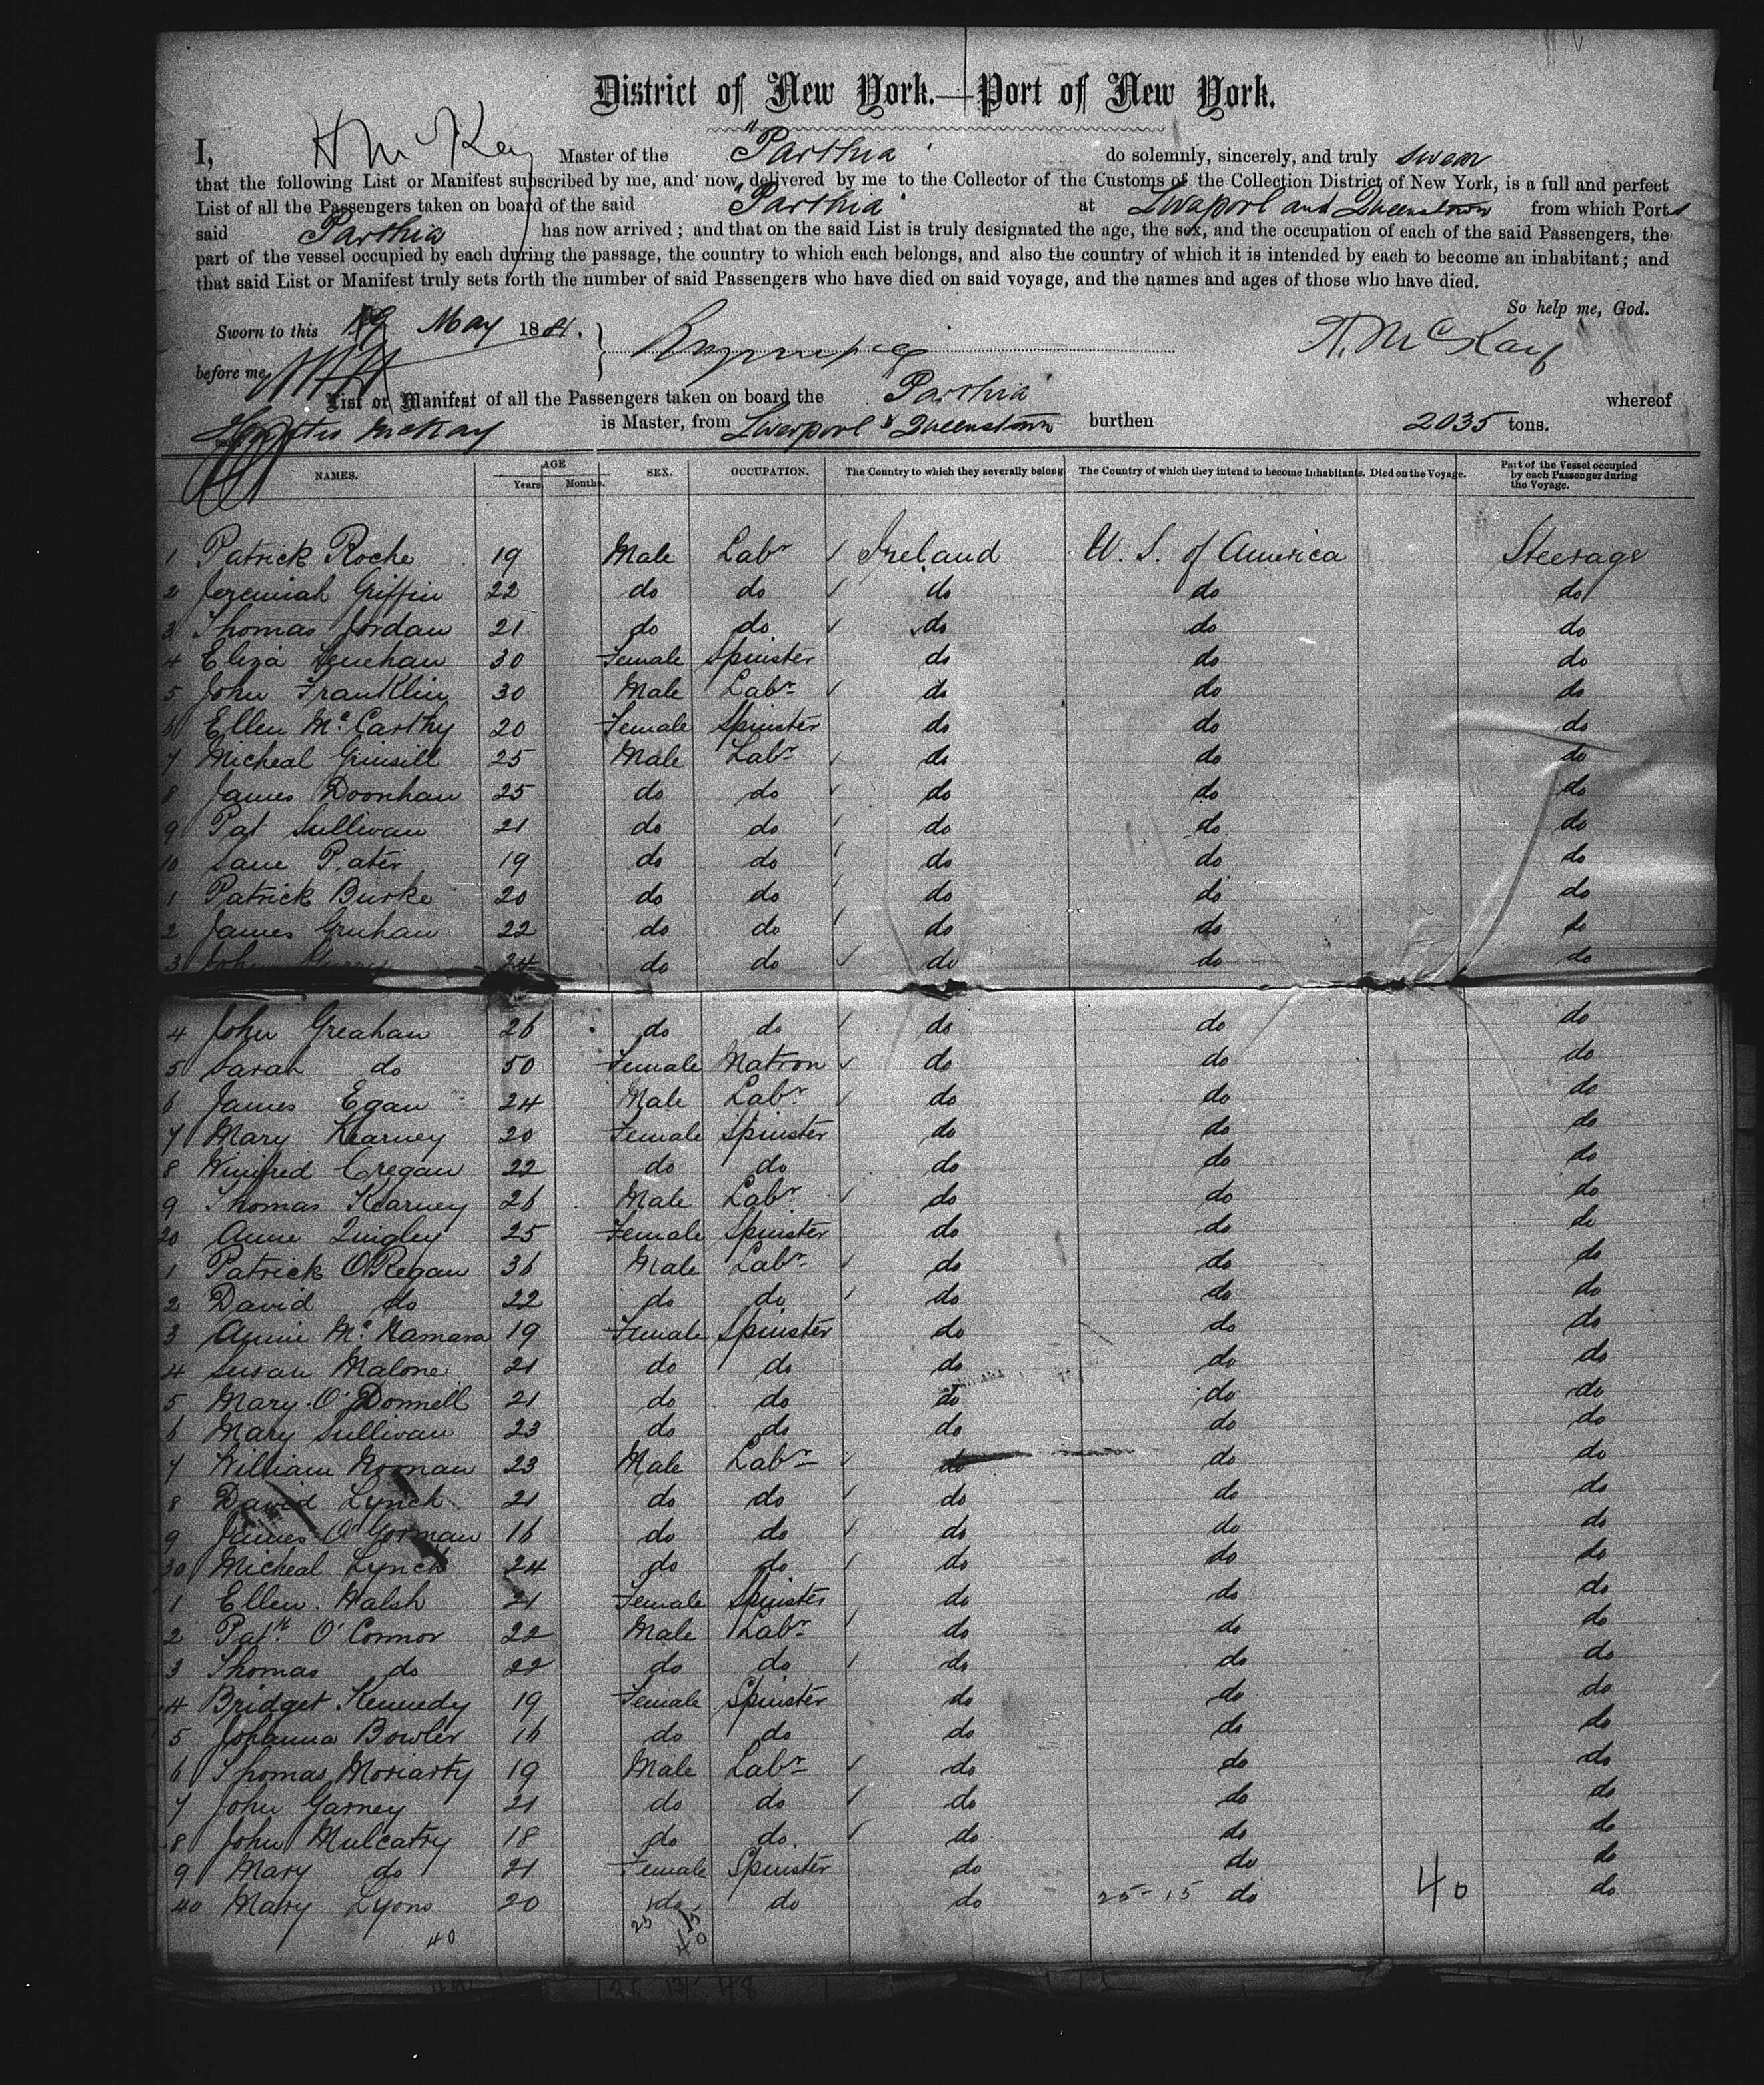 District of New York.—Port of New York.
I, H McKay Master of the "Parthia" do solemnly, sincerely, and truly swear
that the following List or Manifest subscribed by me, and now delivered by me to the Collector of the Customs of the Collection District of New York, is a full and perfect
List of all the Passengers taken on board of the said "Parthia" at Liverpool and Queenstown from which Ports
said Parthia has now arrived; and that on the said List is truly designated the age, the sex, and the occupation of each of the said Passengers, the
part of the vessel occupied by each during the passage, the country to which each belongs, and also the country of which it is intended by each to become an inhabitant; and
that said List or Manifest truly sets forth the number of said Passengers who have died on said voyage, and the names and ages of those who have died.
So help me, God.
Sworn to this 19 May 1881.
H. McKay
before me
List or Manifest of all the Passengers taken on board the Parthia whereof
McKay is Master, from Liverpool & Queenstown burthen 2035 tons.
NAMES. AGE Years. Months. SEX. OCCUPATION. The Country to which they severally belong. The Country of which they intend to become Inhabitants. Died on the Voyage. Part of the Vessel occupied by each Passenger during the Voyage.
1 Patrick Roche 19 Male Labr Ireland U. S. of America Steerage
2 Jeremiah Griffin 22 do do do do do
3 Thomas Jordan 21 do do do do do
4 Eliza Lenehan 30 Female Spinster do do do
5 John Franklin 30 Male Labr do do do
6 Ellen McCarthy 20 Female Spinster do do do
7 Micheal Grinsill 25 Male Labr do do do
8 James Doonhan 25 do do do do do
9 Pat Sullivan 21 do do do do do
10 Pater 19 do do do do do
1 Patrick Burke 20 do do do do do
2 James Gruhan 22 do do do do do
3 John 24 do do do do do
4 John Greahan 26 do do do do do
5 Sarah do 50 Female Matron do do do
6 James Egan 24 Male Labr do do do
7 Mary Kearney 20 Female Spinster do do do
8 Winifred Cregan 22 do do do do do
9 Thomas Kearney 26 Male Labr do do do
20 Anne Quigley 25 Female Spinster do do do
1 Patrick O'Regan 36 Male Labr do do do
2 David do 22 do do do do do
3 Annie McNamara 19 Female Spinster do do do
4 Susan Malone 21 do do do do do
5 Mary O'Donnell 21 do do do do do
6 Mary Sullivan 23 do do do do do
7 William Noonan 23 Male Labr do do do
8 David Lynch 21 do do do do do
9 James O'Gorman 16 do do do do do
30 Micheal Lynch 24 do do do do do
1 Ellen Walsh 21 Female Spinster do do do
2 Patk O'Connor 22 Male Labr do do do
3 Thomas do 22 do do do do do
4 Bridget Kennedy 19 Female Spinster do do do
5 Johanna Bowler 16 do do do do do
6 Thomas Moriarty 19 Male Labr do do do
7 John Garney 21 do do do do do
8 John Mulcatry 18 do do do do do
9 Mary do 21 Female Spinster do do do
40 Mary Lyons 20 do do do 25-15 do 40 do
40 25 15
40